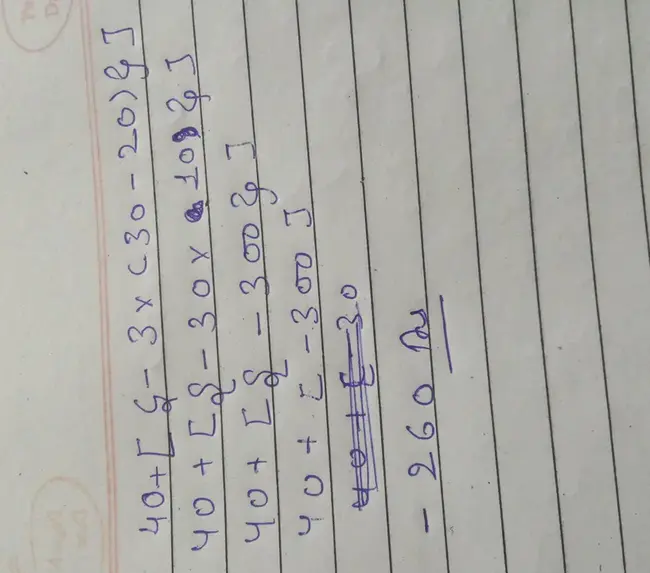 40+[{-3×(30-20)}]
40+[{-30×10}]
40+[{-300}]
40+[-300]
40+[-30
-260 Ans